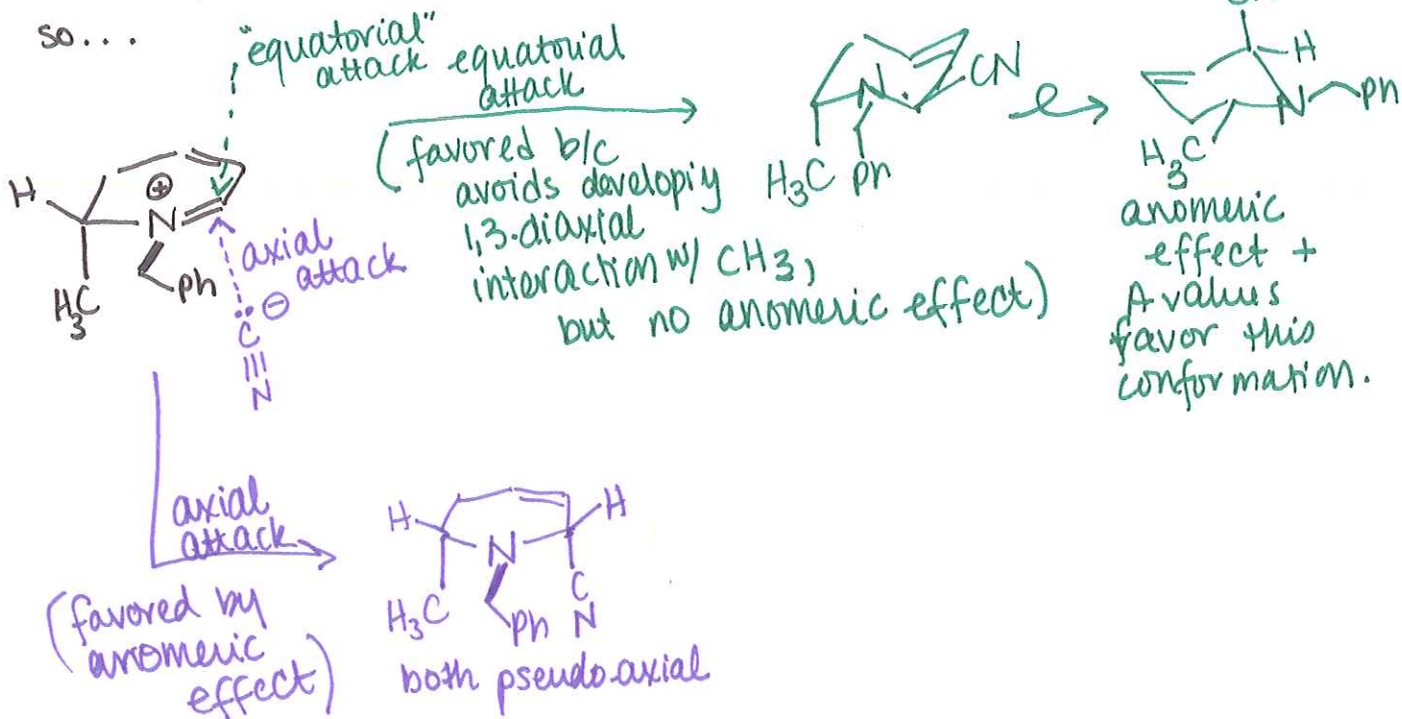 so...
"equatorial"
attack
equatorial
attack
(favored b/c
avoids developiy
1,3-diaxial
interaction w/ CH3,
but no anomeric effect)
H
⊕
N
H3C
Ph
axial
attack
⊖
C
N
N
CN
H3C
Ph
H
N
Ph
H3C
anomeric
effect +
A values
favor this
conformation.
axial
attack
(favored by
anomeric
effect)
H
H
N
H3C
Ph
C
N
both pseudo-axial